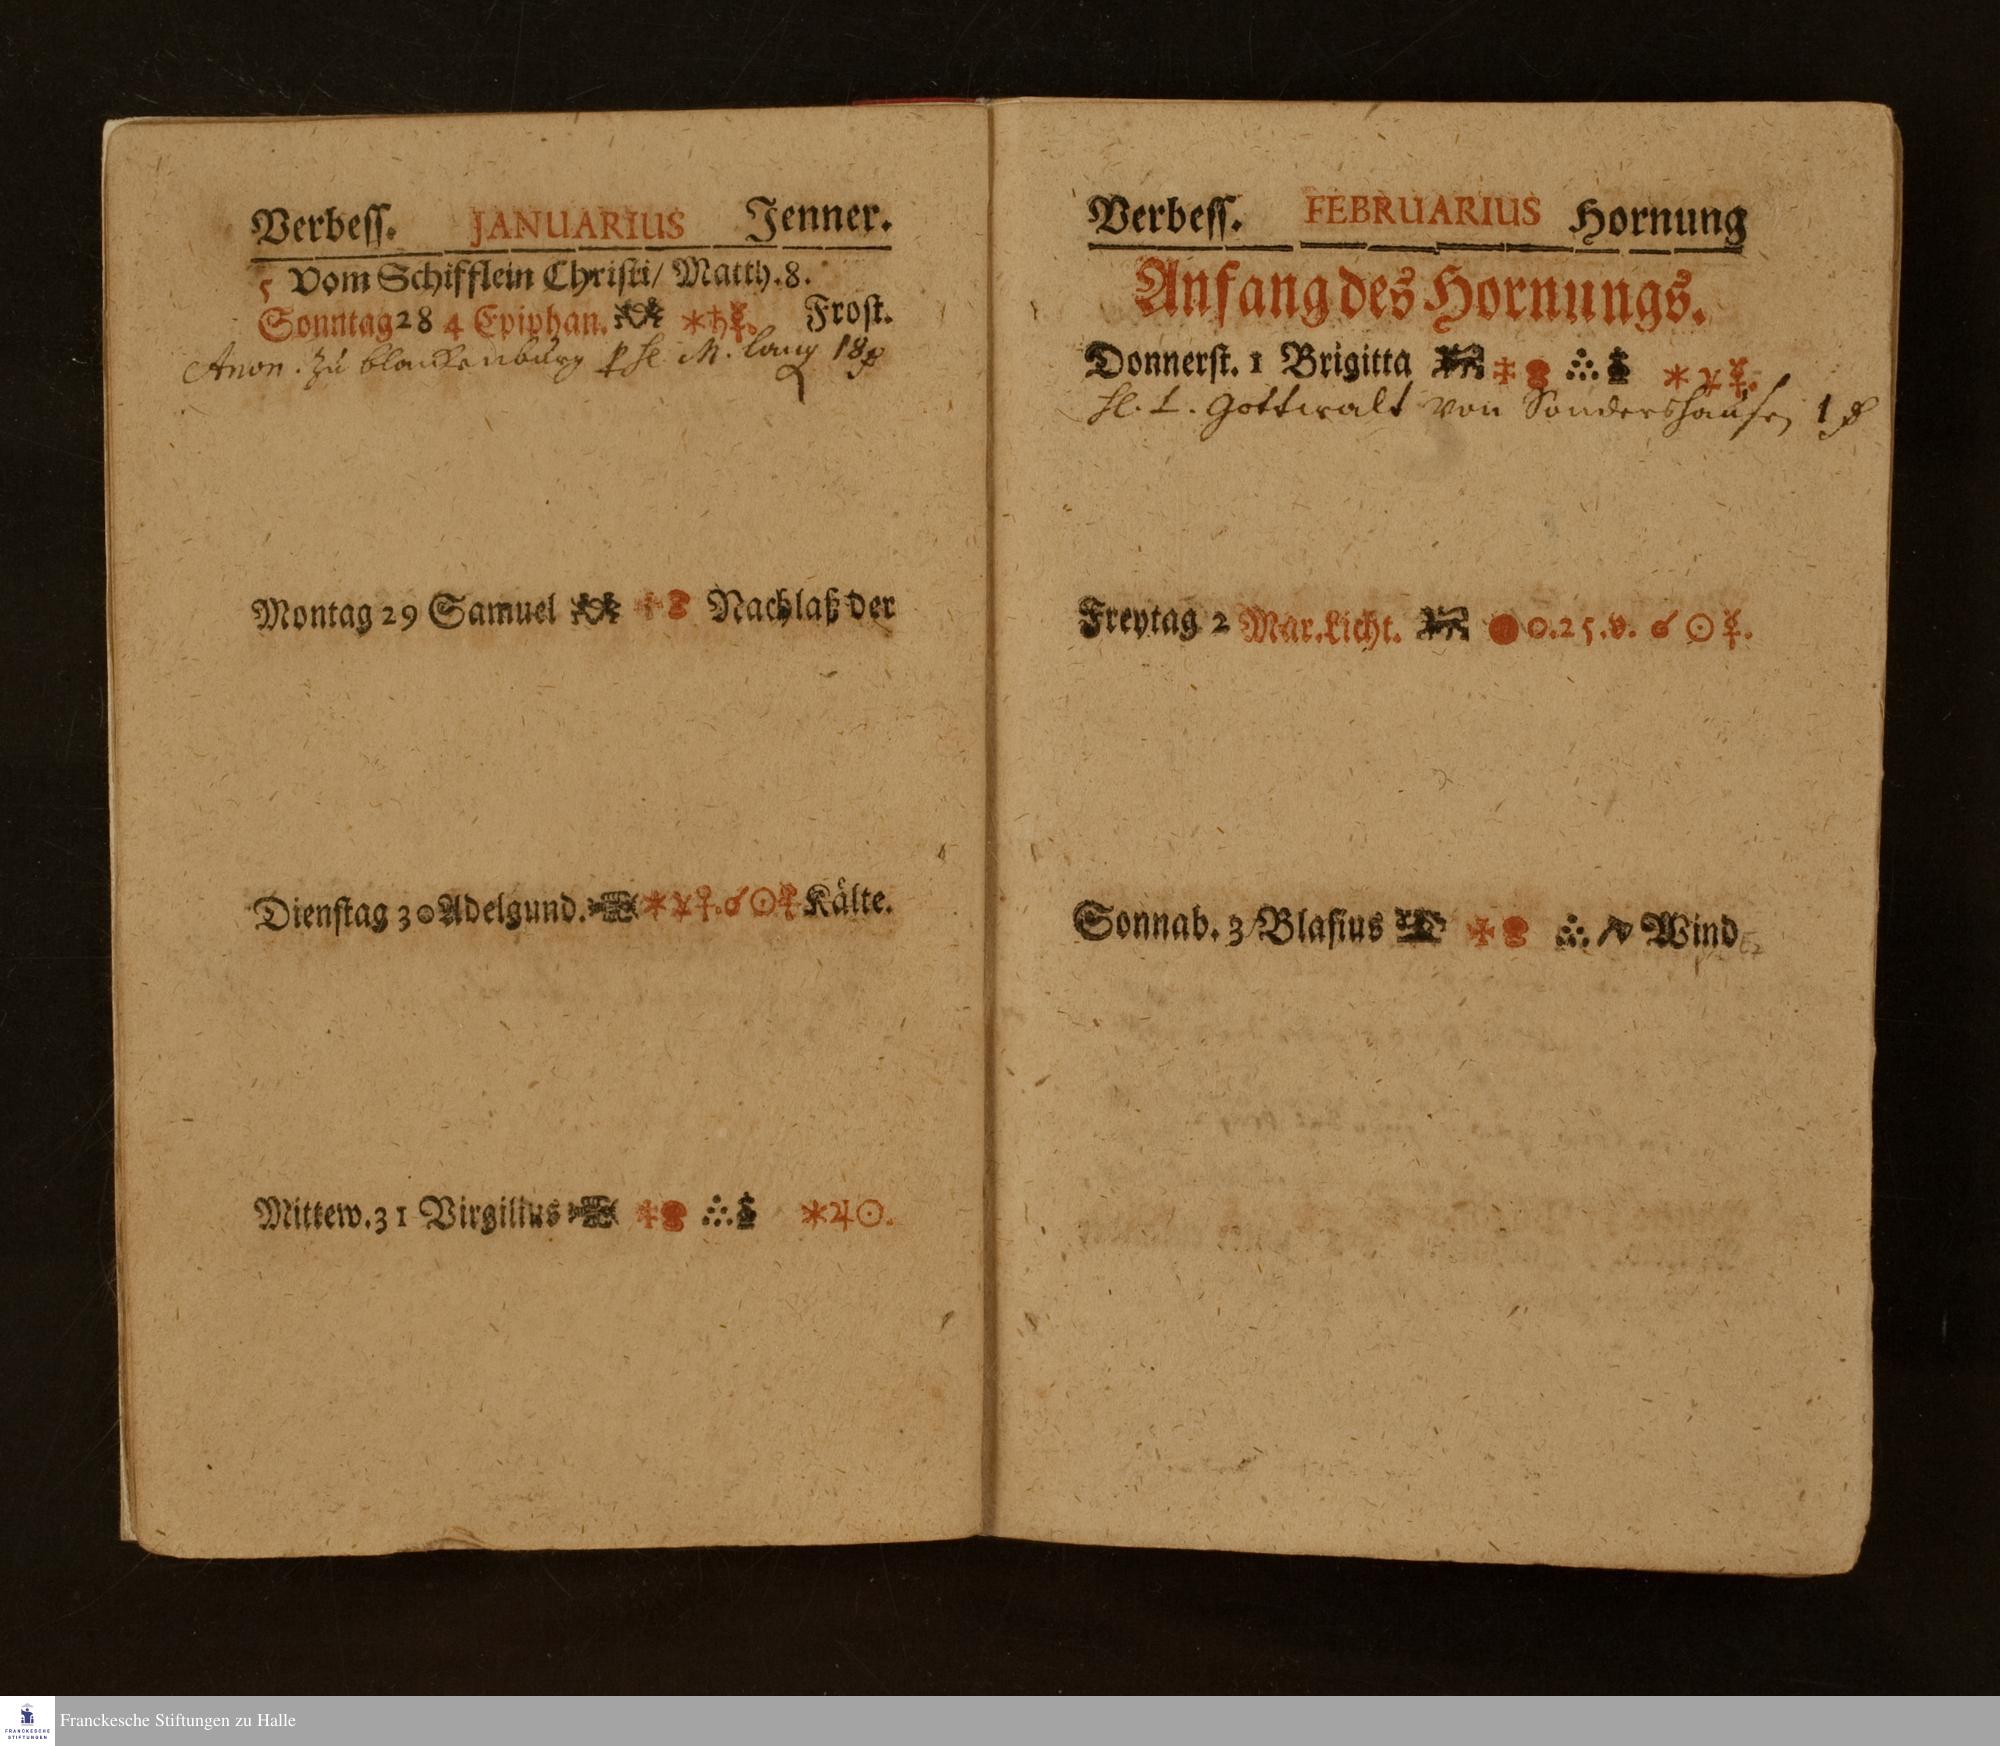 Verbess. JANUARIUS Jenner.
5 Vom Schifflein Christi/ Matth. 8.
Sonntag 28 4 Epiphan. ⚹♄☿. Frost.
Anon. zu blanckenburg p H. M. lang 18
Montag 29 Samuel Nachlaß der
Dienstag 30 Adelgund. ⚹ ☌☉ Kälte.
Mittew. 31 Virgilius ⚹♃☉.
Verbess. FEBRUARIUS Hornung
Anfang des Hornungs.
Donnerst. 1 Brigitta ⚹
H. L. Gottwalt von Sondershausen 1
Freytag 2 Mar. Licht. ● 0.25.v. ☌ ☉☿.
Sonnab. 3 Blasius Wind
Franckesche Stiftungen zu Halle
FRANCKESCHE
STIFTUNGEN